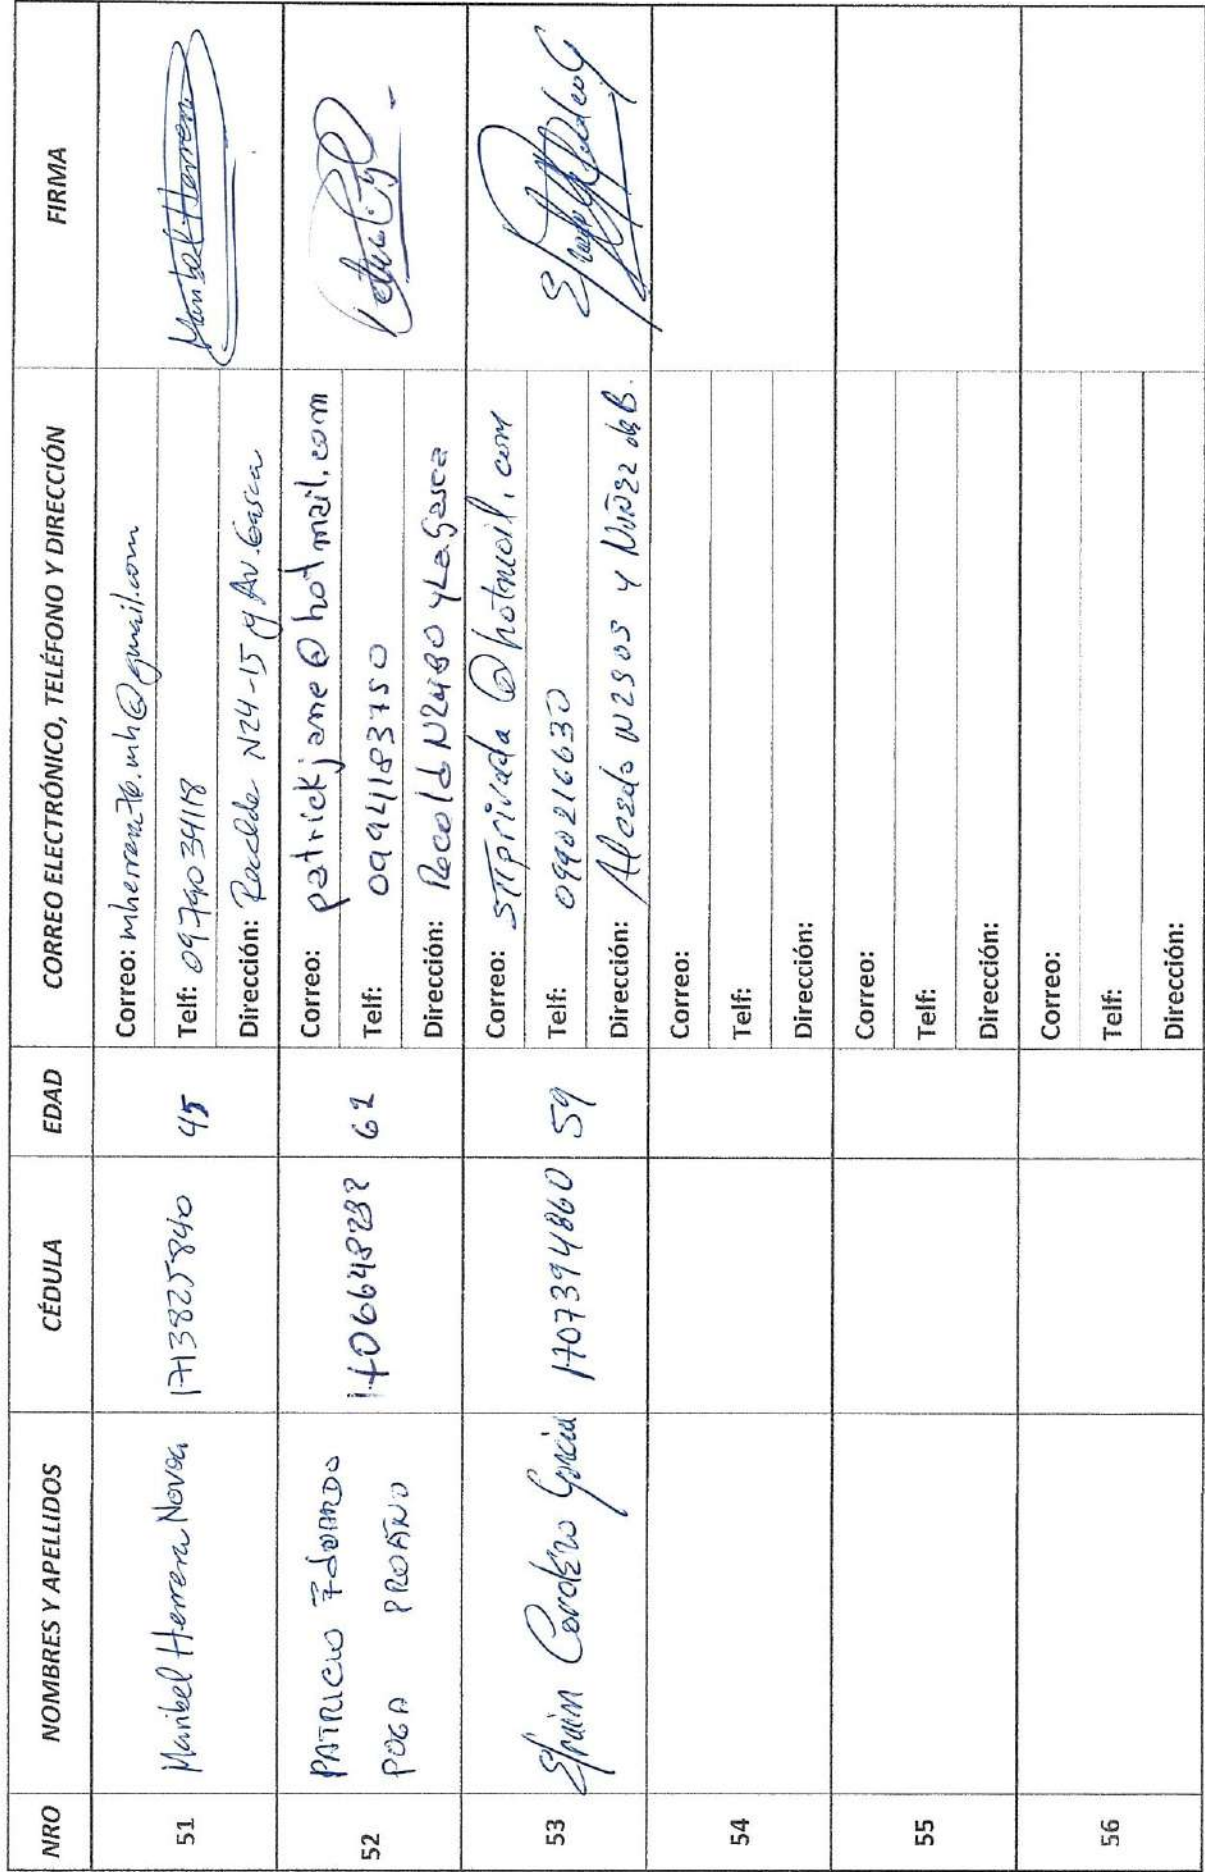 NRO NOMBRES Y APELLIDOS CÉDULA EDAD CORREO ELECTRÓNICO, TELÉFONO Y DIRECCIÓN FIRMA
51 Maribel Herrera Novoa 1713825840 45
Correo: mherrera76.mh@gmail.com
Telf: 0979034118
Dirección: Recalde N24-15 y Av. Gasca
Maribel Herrera
52 PATRICIO EDUARDO
POGA PROAÑO
1706648282 62
Correo: patrickjane@hotmail.com
Telf: 09941183750
Dirección: N2480 y La Gasca
53 Efrain Cordero Garcia 1707394860 59
Correo: STTprivada@hotmail.com
Telf: 0990216630
Dirección: Alcedo N2303 y Nuñez de B.
54
Correo:
Telf:
Dirección:
55
Correo:
Telf:
Dirección:
56
Correo:
Telf:
Dirección: